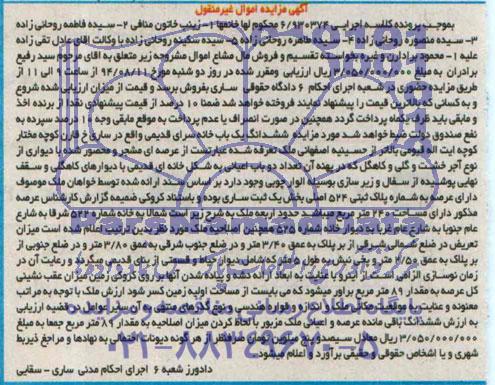 آگهی مزایده اموال غیرمنقول
بموجب پرونده کلاسه اجرایی ۶/۹۳۰۳۷۴ محکوم لها خانمها ۱- زینب خاتون منافی ۲- سیده فاطمه روحانی زاده
۳- سیده منصوره روحانی زاده ۴- سیده طاهره روحانی زاده ۵- سیده سکینه روحانی زاده با وکالت آقای عادل تقی زاده
علیه ۱- محمود برادران و غیره بخواسته تقسیم و فروش مال مشاع اموال مشروحه زیر متعلق به آقای مرحوم سید رفیع
برادران به مبلغ ۳/۰۵۰/۰۰۰/۰۰۰ ریال ارزیابی ومقرر شده در روز دو شنبه مورخ ۹۴/۰۸/۱۱ از ساعت ۱۰ الی ۱۱ از
طریق مزایده حضوری در شعبه اجرای احکام ۶ دادگاه حقوقی ساری بفروش برسد و قیمت از میزان ارزیابی شده شروع
و به کسانی که بالاترین قیمت را پیشنهاد نمایند فروخته خواهد شد ضمنا ۱۰ درصد از قیمت پیشنهادی نقدا از برنده اخذ
و مابقی باید ظرف یکماه پرداخت گردد همچنین در صورت انصراف یا عدم پرداخت به موقع مابقی وجه ۱۰ درصد سپرده به
نفع صندوق دولت ضبط خواهد شد مورد مزایده ششدانگ یک باب خانه سرای قدیمی واقع در ساری خ قارن کوچه مختار
کوچه آیت اله قیومی بالاتر از حسینیه اصفهانی ملک تعرفه شده عبارتست از عرصه ای مشجر و محصور شده با دیواری از
نوع آجر خشت و گلی و کاهگل که در پهنه آن تعداد دو باب اعیانی به شکل خانه ای قدیمی با دیوارهای کاهگلی و سقف
نهایی پوشیده از سفال و زیر سازی بوسیله الوار چوبی وجود دارد بر اساس سند ارائه شده توسط خواهان ملک موصوف
دارای عرصه به شماره پلاک ثبتی ۵۲۴ اصلی بخش یک ثبت ساری بوده و باستناد کروکی ضمیمه گزارش کارشناس عرصه
مذکور دارای مساحت ۲۴۰ متر مربع میباشد حدود اربعه ملک به شرح زیر است شمالا به خانه شماره ۵۲۳ شرقا به شارع
عام جنوبا به شارع عام غربا به دیوار خانه شماره ۵۲۵ همچنین اصلاحیه ملک مورد نظر بدین ترتیب اعلام شده است میزان
تعریض در ضلع شمالی و شرقی از بر پلاک به عمق ۳/۴۰ متر و در ضلع جنوب شرقی به عمق ۳/۸۰ متر و در ضلع جنوبی از
بر پلاک به عمق متر و پخی نبش به طول ۵ متر که شامل دیوار حیاط و قسمتی از بنای قدیمی میگردد و رعایت آن در
زمان نوسازی الزامی است
کل عرصه به مقدار ۸۹ متر مربع برآورد میشود که می بایست از مساحت اولیه زمین کسر شود ارزش ملک با توجه به مراتب
معنونه و عنایت به موقعیت مکانی ملک و اندازه و قواره هندسی و نوع گذرهای منتهی به آن و سایر عوامل در قضیه ارزیابی
به ارزش ششدانگ باقی مانده عرصه و اعیانی ملک مزبور با لحاظ کردن میزان اصلاحیه به مقدار ۸۹ متر مربع جمعا به مبلغ
۳/۰۵۰/۰۰۰/۰۰۰ ریال معادل سیصدو پنج میلیون تومان صرفنظر از هر گونه دیونات احتمالی به نهادها و مراجع ذیربط
شهری و یا اشخاص حقوقی و حقیقی برآورد و اعلام میشود
دادورز شعبه ۶ اجرای احکام مدنی ساری - سقایی